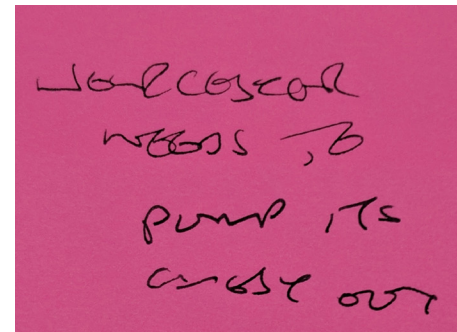 WORCESTER
NEEDS TO
PUMP ITS
CHEESE OUT